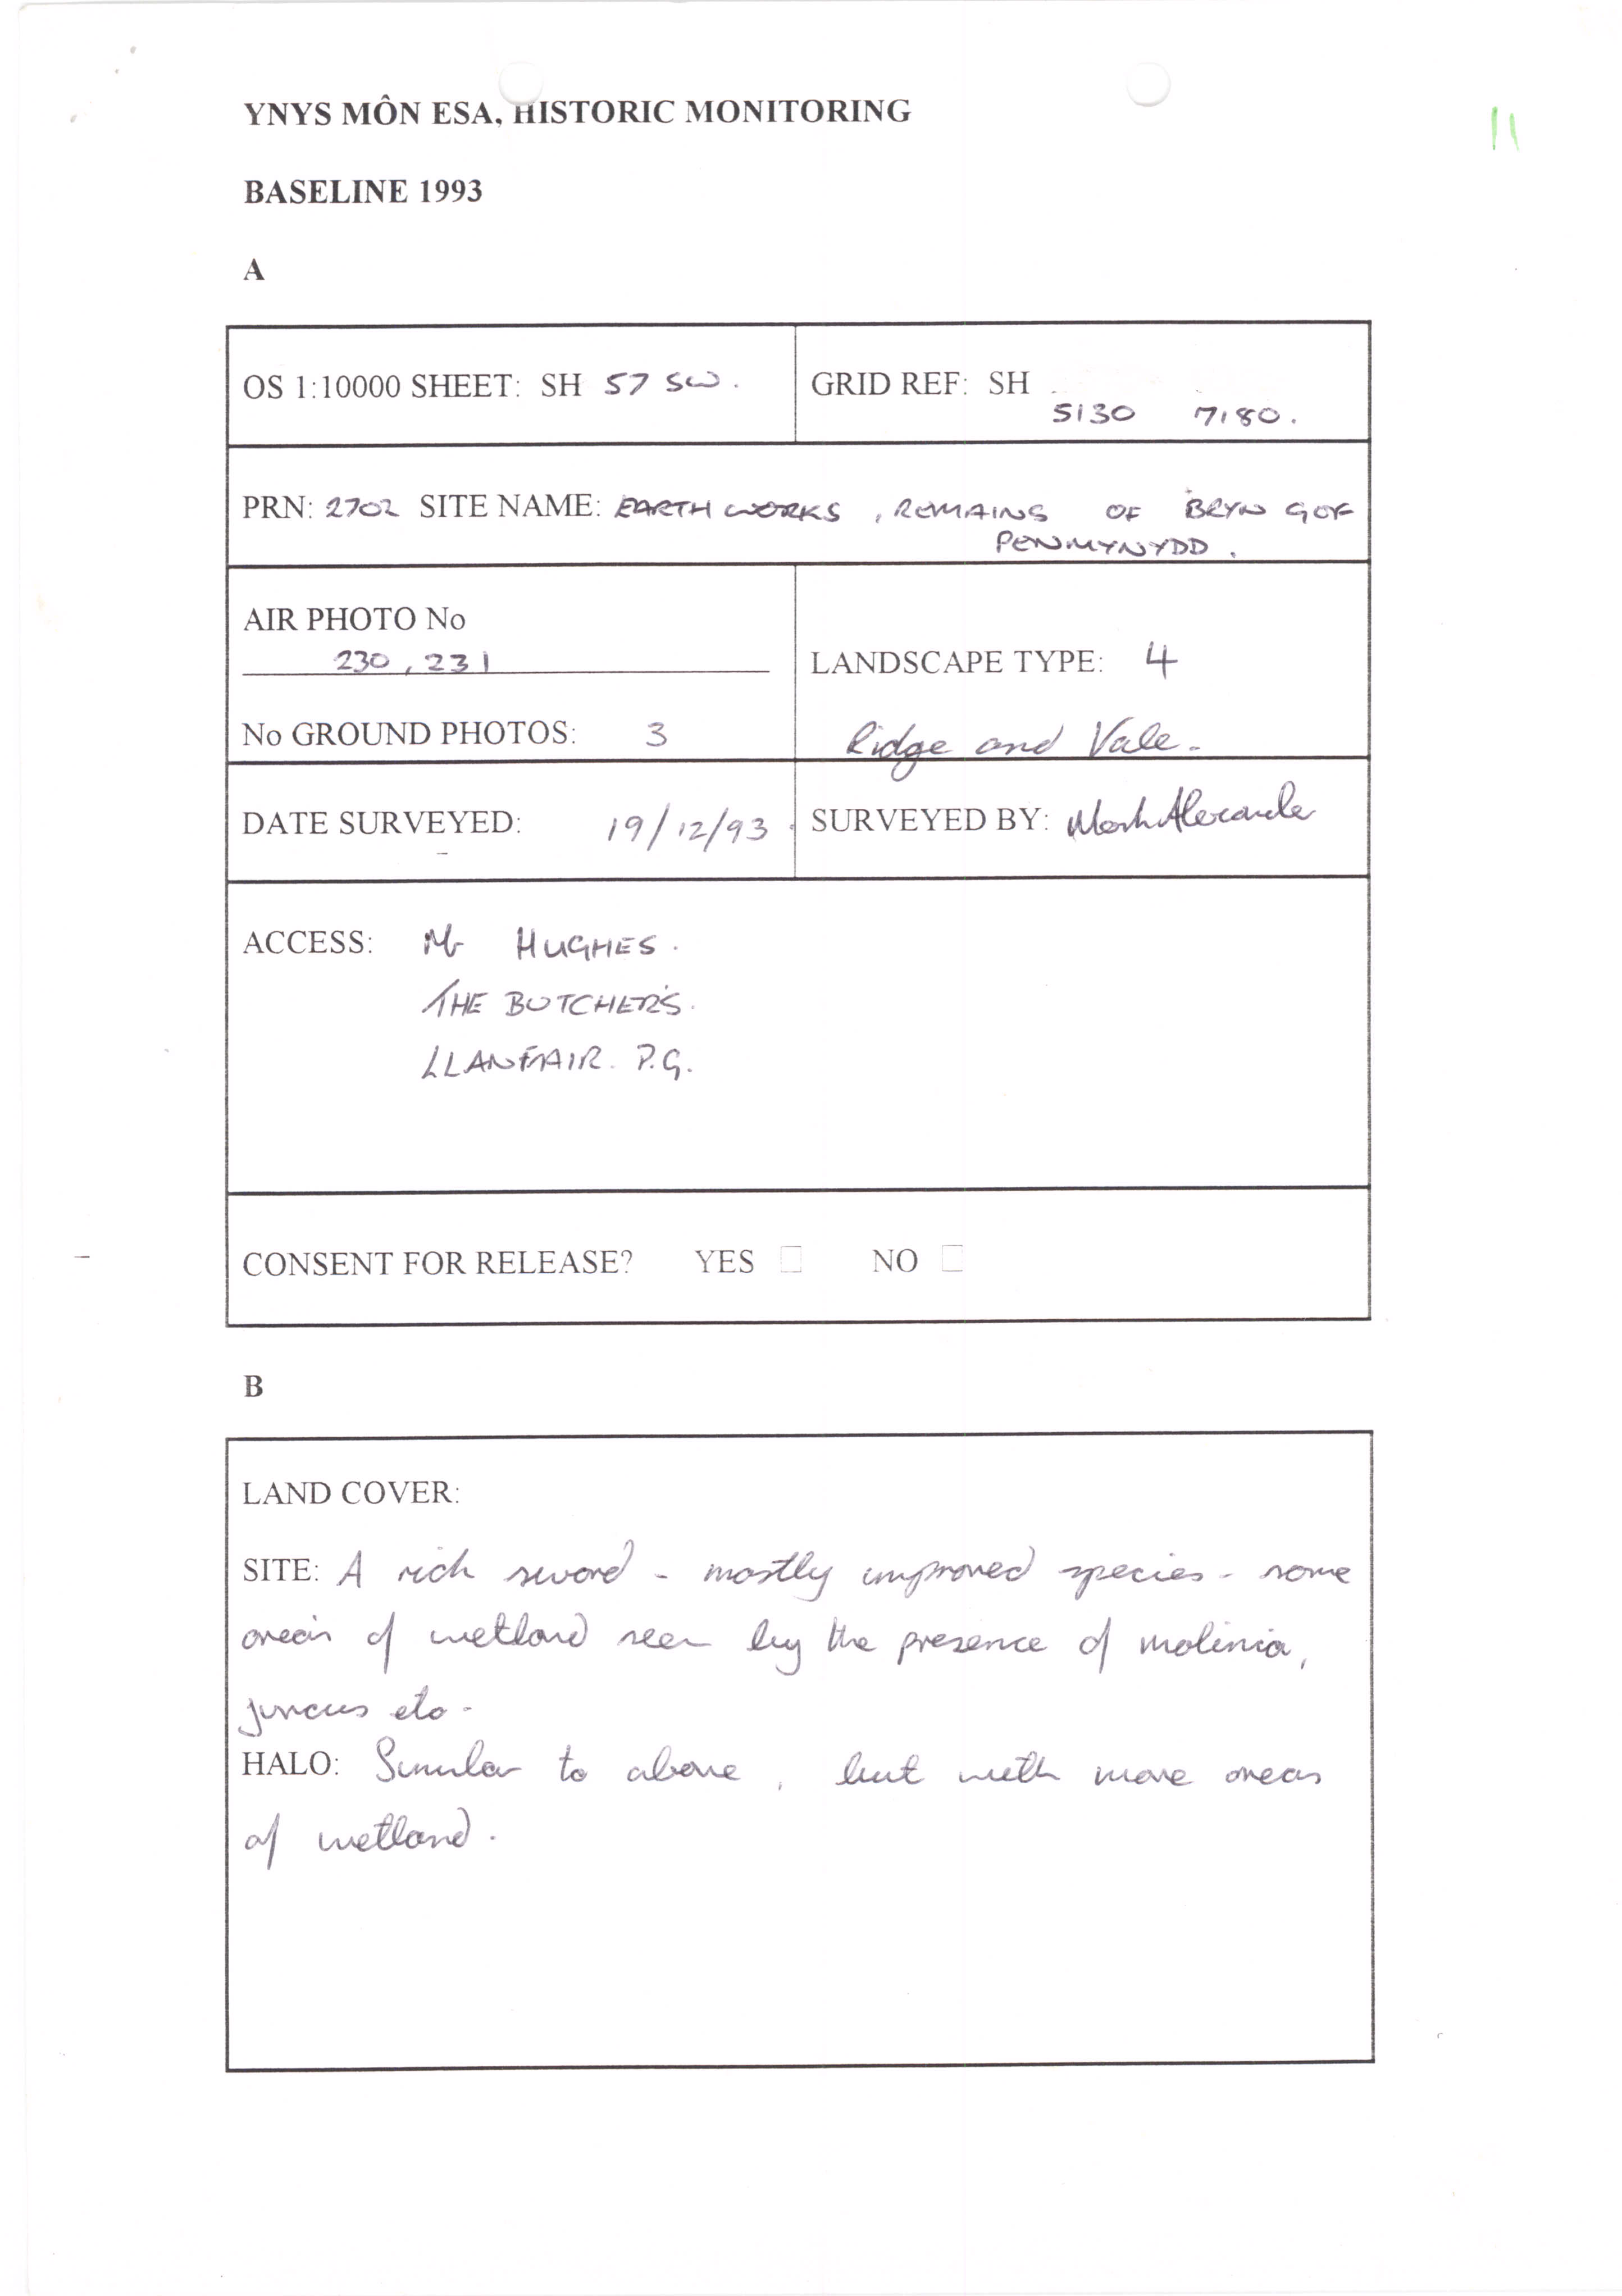 YNYS MÔN ESA, HISTORIC MONITORING
11
BASELINE 1993
A
OS 1:10000 SHEET: SH 57 SW.
GRID REF: SH
5130 7180.
PRN: 2702 SITE NAME: EARTHWORKS, REMAINS OF BRYN GOF
PENMYNYDD.
AIR PHOTO No
230, 231
LANDSCAPE TYPE: 4
No GROUND PHOTOS: 3
Ridge and Vale.
DATE SURVEYED: 19/12/93.
SURVEYED BY: Mark Alexander
ACCESS: Mr HUGHES.
THE BUTCHER'S.
LLANFAIR. P.G.
CONSENT FOR RELEASE? YES NO
B
LAND COVER:
SITE: A rich sword - mostly improved species - some
areas of wetland seen by the presence of molinia,
juncus etc.
HALO: Similar to above, but with more areas
of wetland.